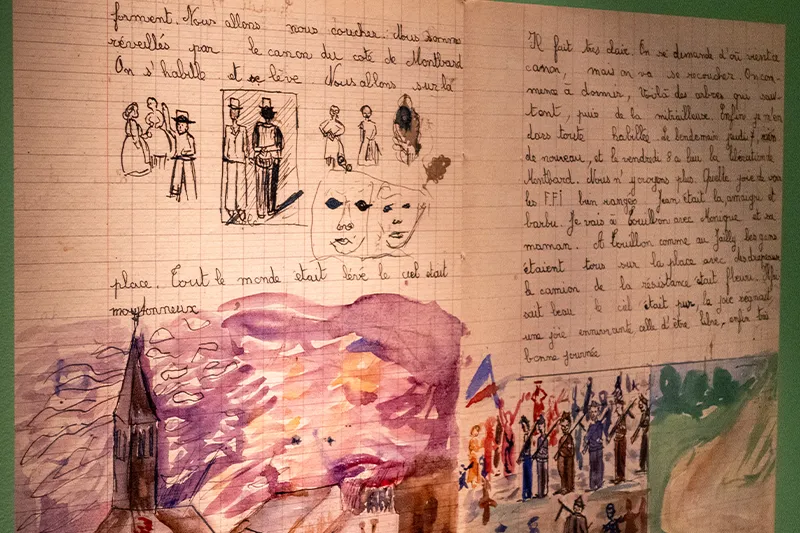 forment. Nous allons nous coucher. Nous sommes
réveillés par le canon du coté de Montbard
On s'habille et se lève Nous allons sur la
place. Tout le monde était lévé le ciel était
moutonneux
Il fait très clair. On se demande d'où vient ce
canon, mais on va se recoucher. On com-
mence à dormir, Voilà des arbres qui sau-
tent, puis de la mitrailleuse. Enfin je m'en
dors toute habillée. Le lendemain jeudi 7, rien
de nouveau, et le vendredi 8 a lieu la libération de
Montbard. Nous n'y croyons plus. Quelle joie de voir
les F.F.I bien rangés. Jean était là, amaigri et
barbu. Je vais à Touillon avec Monique et sa
maman. A Touillon comme au Jailly les gens
étaient tous sur la place avec des drapeaux
le camion de la résistance était fleuri. Il fai
sait beau le ciel était pur, la joie régnait,
une joie ennivrante celle d'être libre, enfin très
bonne journée